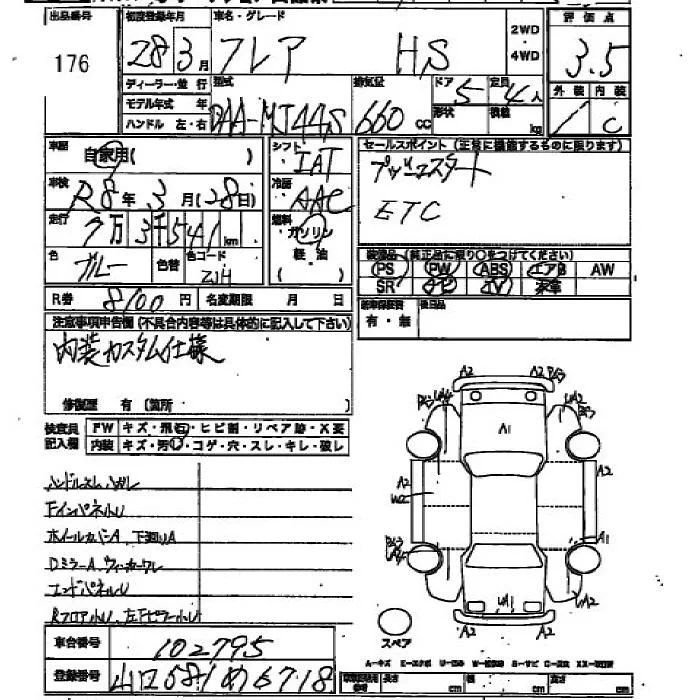 出品番号 初度登録年月 車名・グレード 2WD・4WD 評価点
176 28 3月 フレア HS 3.5
ディーラー・並行 型式 排気量 ドア 5 定員 4人 外装 内装
モデル年式 年 DAA-MJ44S 660cc 形状 積載 kg C
ハンドル 左・右
車歴 自家用( ) シフト IAT セールスポイント(正常に機能するものに限ります)
車検 R8年 3月(28日) 冷房 AAC プッシュスタート
走行 7万3千541km 燃料 ガソリン・軽油 ( ) ETC
色 ブルー 色替 色コード ZJH
装備品(純正品に限り○をつけてください)
PS PW ABS エアB AW
SR ナビ TV 革
R券 8100円 名変期限 月 日 有・無 後日品
注意事項申告欄(不具合内容等は具体的に記入して下さい)
内装カスタム仕様
修復歴 有(箇所
検査員記入欄 FW キズ・飛石・ヒビ割・リペア跡・X要
内装 キズ・汚・コゲ・穴・スレ・キレ・破レ
ハンドルスレ、ハガレ
FインパネルU
ホイールカバーA、下廻りA
DミラーA、ウィンカーワレ
エンドパネルU
A2 A2
A1
A2 W2 A2
A1
UA1 UA2
A2 A2
スペア
車台番号 102795
登録番号 山口581 め 6718
長さ cm 幅 cm 高さ cm